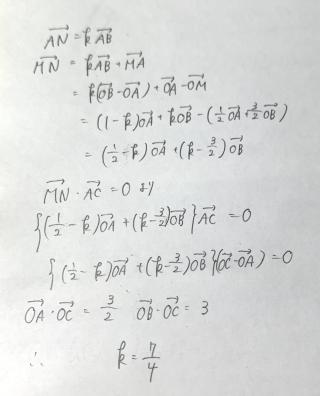 AN→ = kAB→
MN→ = kAB→ + MA→
= k(OB→ - OA→) + OA→ - OM→
= (1-k)OA→ + kOB→ - (1/2 OA→ + 3/2 OB→)
= (1/2 - k)OA→ + (k - 3/2)OB→
MN→・AC→ = 0 より
{(1/2 - k)OA→ + (k - 3/2)OB→}AC→ = 0
{(1/2 - k)OA→ + (k - 3/2)OB→}(OC→ - OA→) = 0
OA→・OC→ = 3/2 OB→・OC→ = 3
∴ k = 7/4